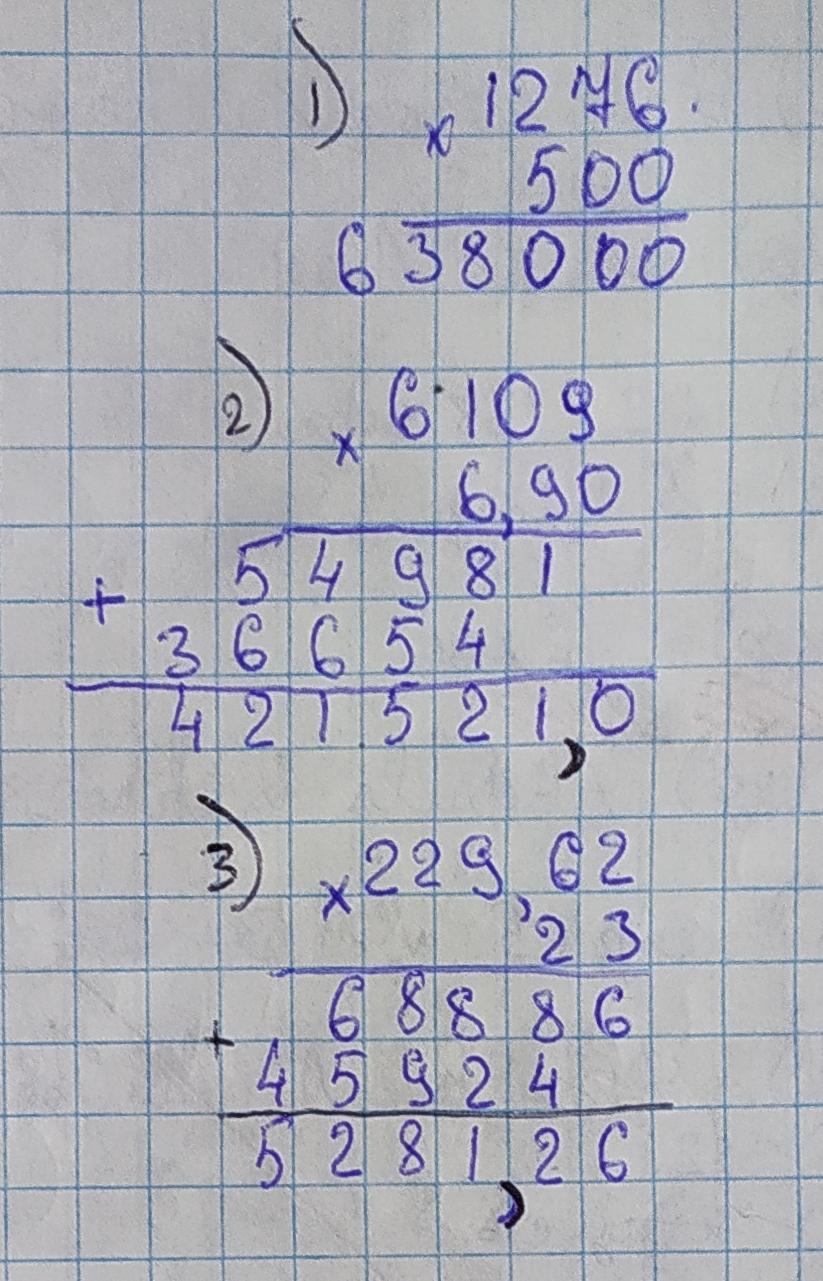 1) × 1276.
500
638000
2) × 6109
6,90
+ 54981
36654
421521,0
3) × 229,62
23
+ 68886
45924
5281,26